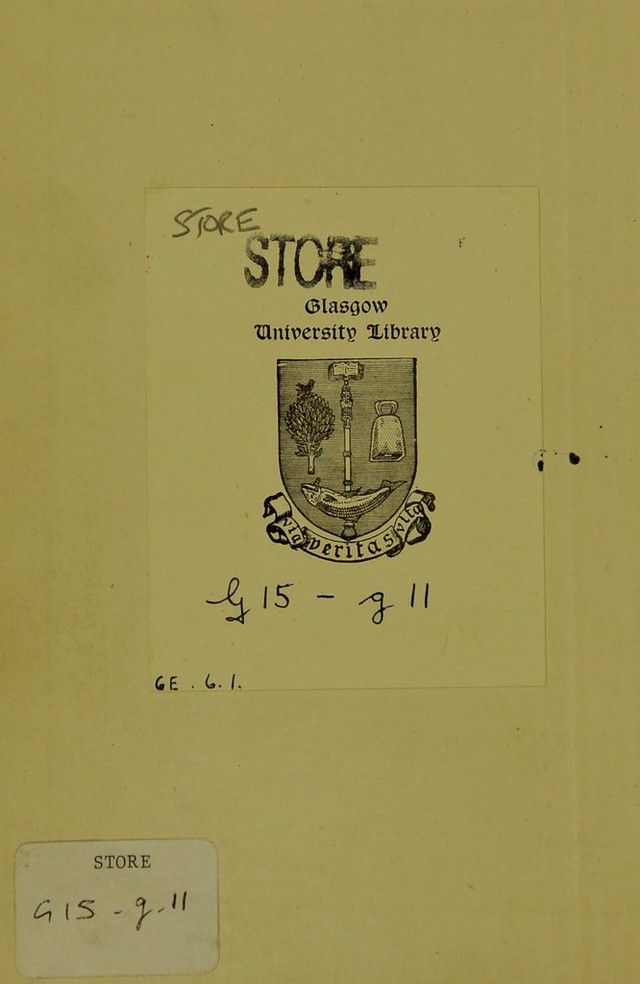 STORE
STORE
Glasgow
University Library
via veritas vita
G 15 - g 11
GE . 6. 1.
STORE
G 15 - g - 11